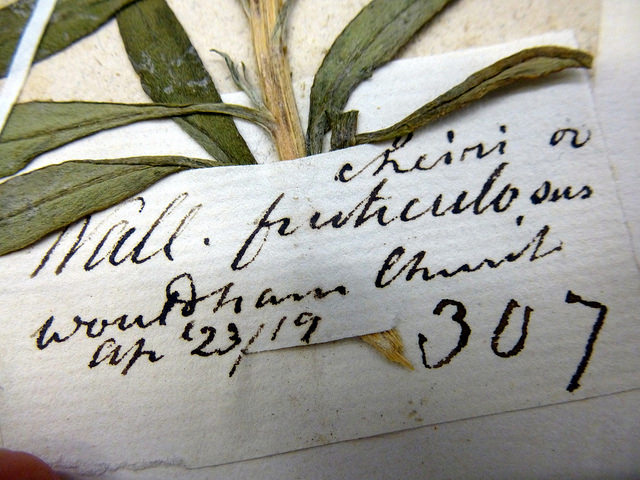 cheiri or
Wall. fruticulosus
wouldham Church
ap '23/19
307